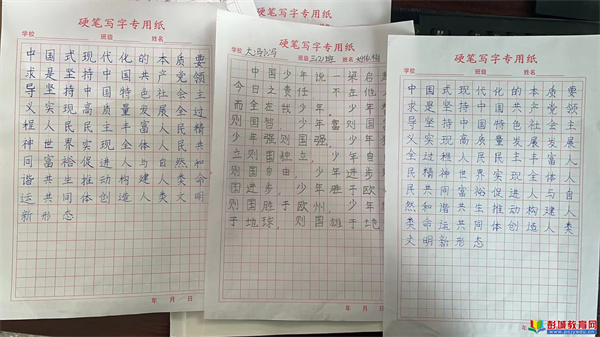 硬笔写字专用纸
学校 班级 姓名
中国式现代化的本质要
求是坚持中国共产党领
导坚持中国特色社会主
义实现高质量发展全过
程人民民主丰富人民精
神世界实现全体人民共
同富裕促进人与自然和
谐共生推动构建人类命
运共同体创造人类文明
新形态
年 月 日
硬笔写字专用纸
学校 班级 姓名
中国少年说—梁启
今日之责任,不在他
而全在我少年,少年
则国智,少年富则国
少年强则国强,少年
立则国独立,少年自
则国自由,少年进步
国进步,少年胜于欧
则国胜于欧州,少年
于地球,则国雄于地
年 月 日
硬笔写字专用纸
学校 班级 姓名
中国式现代化的本质要
求是坚持中国共产党领
导坚持中国特色社会主
义实现高质量发展发展
全过程人民民主丰富人
民精神世界实现全体人
民共同富裕促进人与自
然和谐共生推动构建人
类命运共同体创造人类
文明新形态
年
彭城教育网
www.pcjywdu.cn